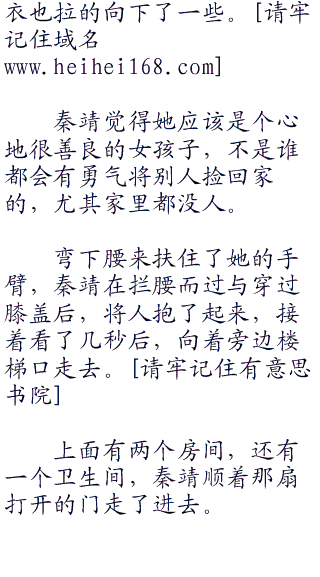 衣也拉的向下了一些。[请牢
记住域名
www.heihei168.com]
秦靖觉得她应该是个心
地很善良的女孩子，不是谁
都会有勇气将别人捡回家
的，尤其家里都没人。
弯下腰来扶住了她的手
臂，秦靖在拦腰而过与穿过
膝盖后，将人抱了起来，接
着看了几秒后，向着旁边楼
梯口走去。[请牢记住有意思
书院]
上面有两个房间，还有
一个卫生间，秦靖顺着那扇
打开的门走了进去。